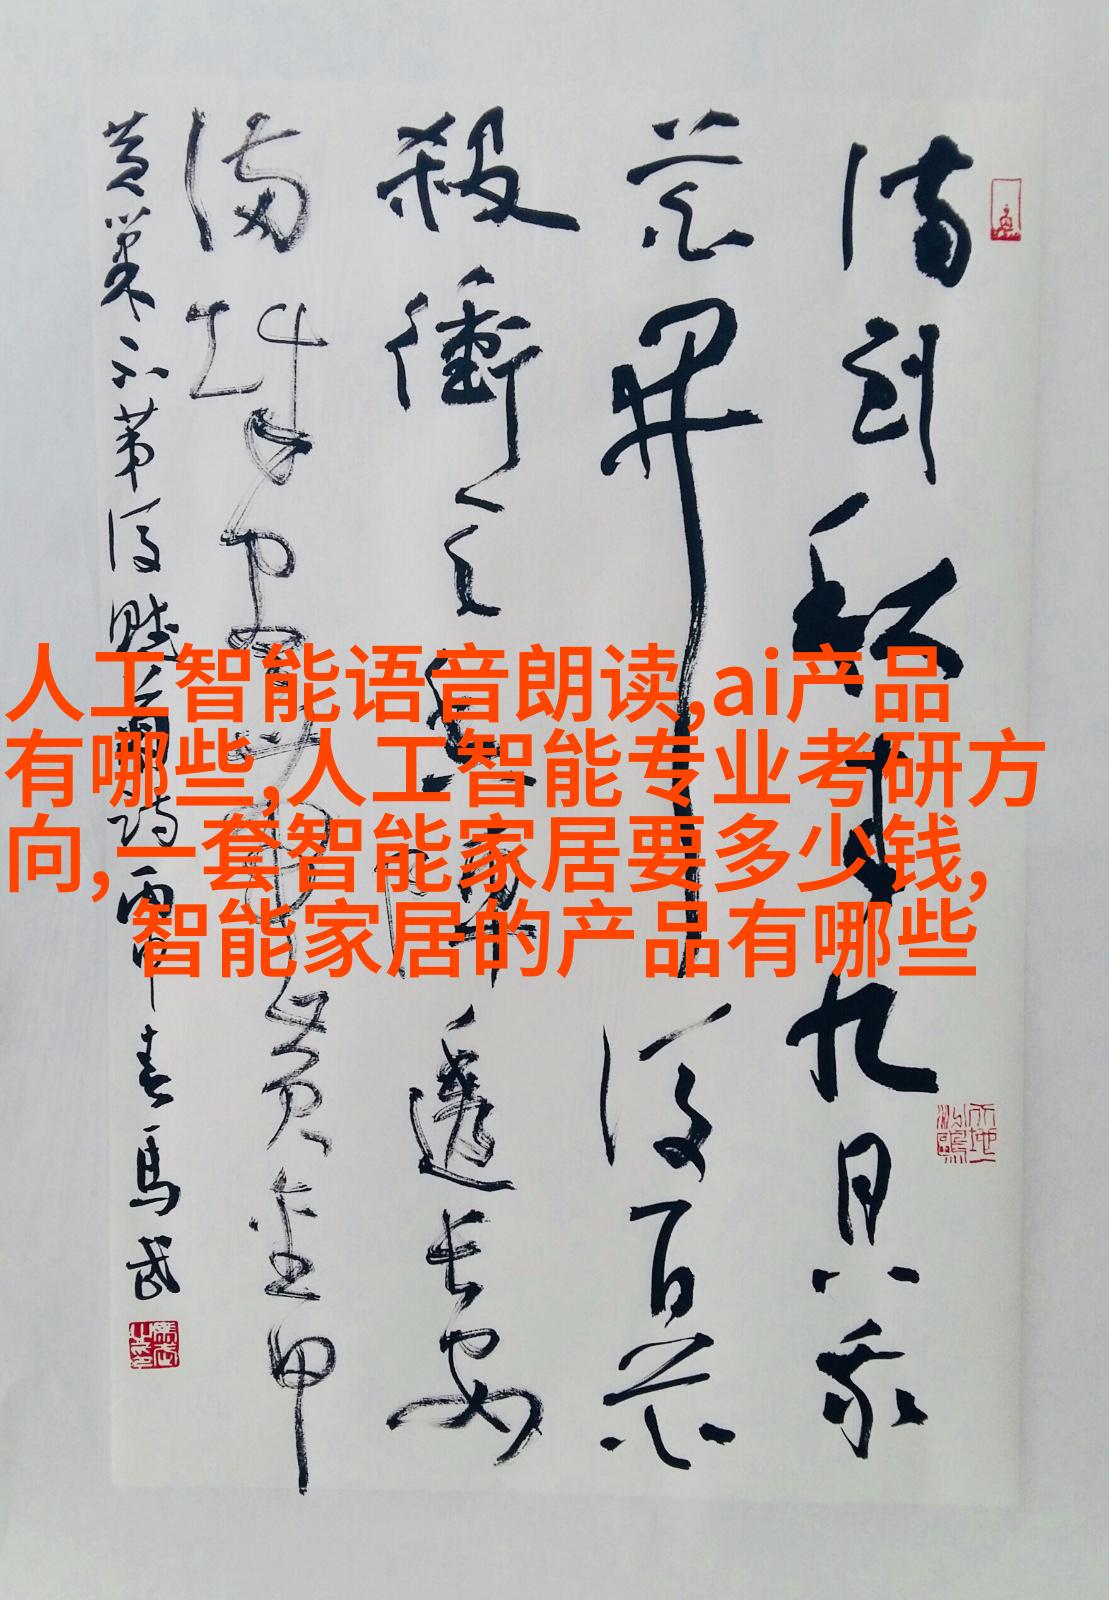 待到秋来九月八我
花開後百花
殺衝天香陣透長安
满城盡帶黄金甲
黄巢不第後賦菊詩丙申春馬武
人工智能语音朗读,ai产品
有哪些,人工智能专业考研方
向,一套智能家居要多少钱,
智能家居的产品有哪些